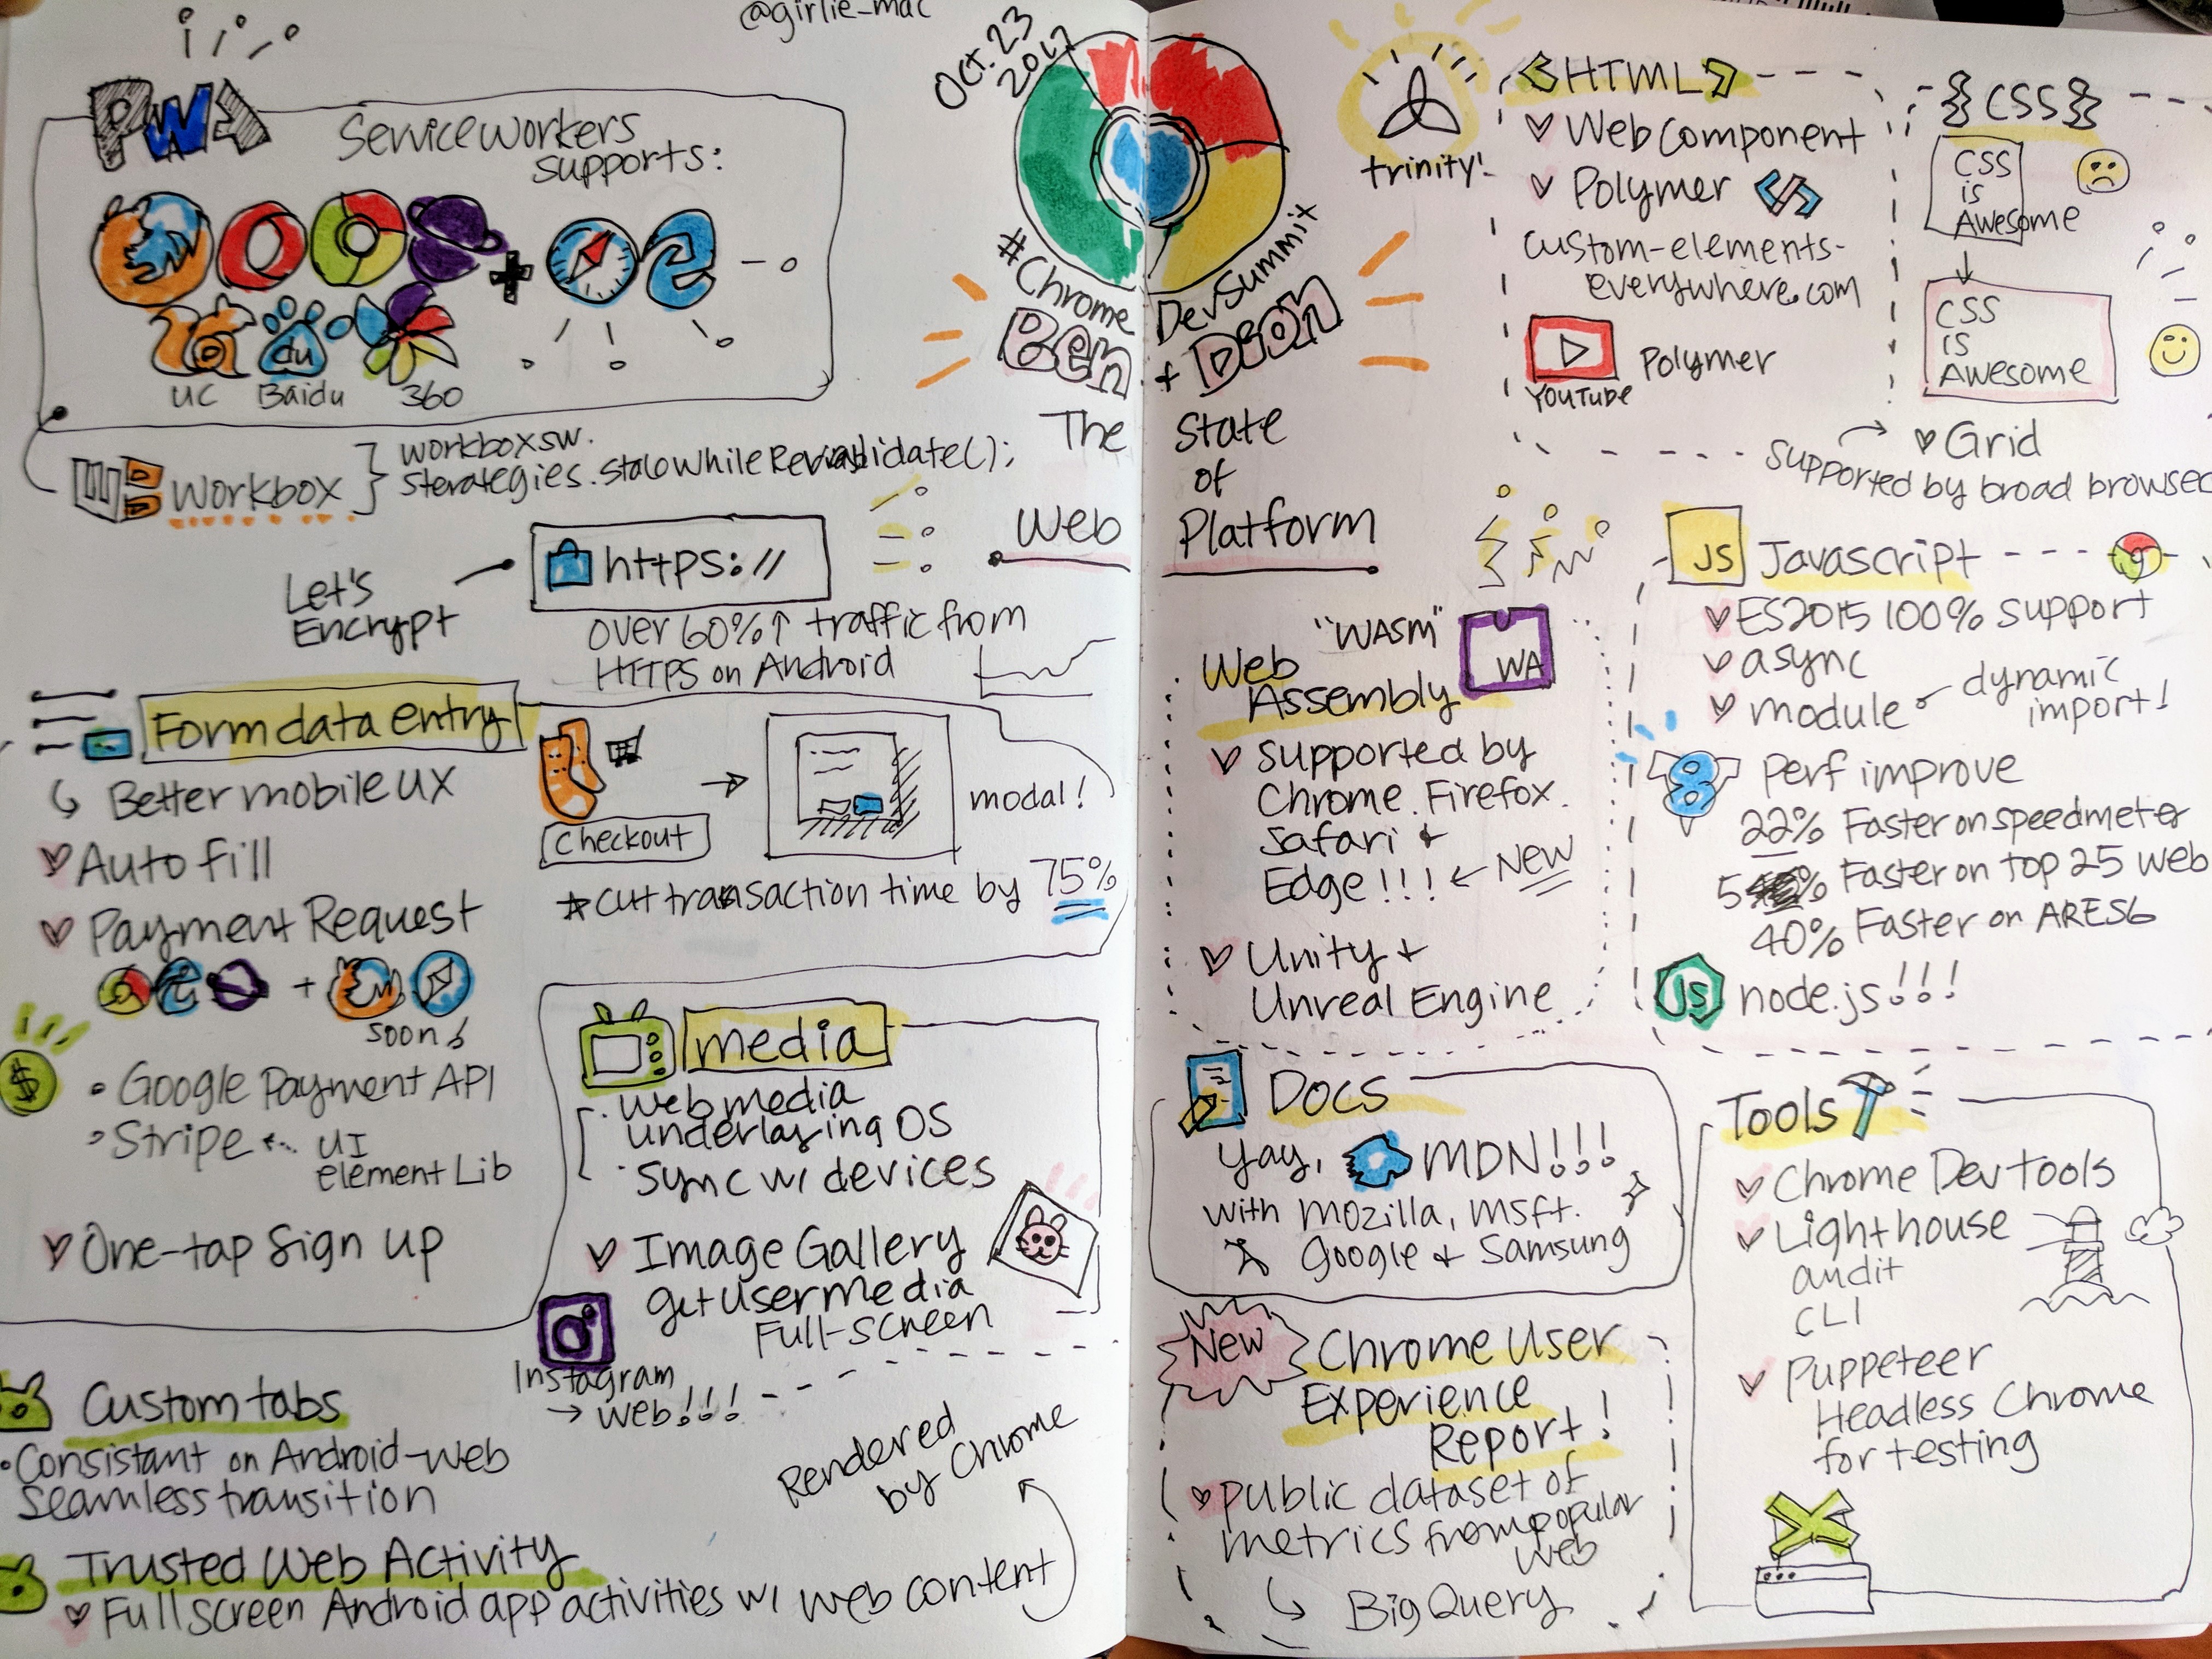 @girlie_mac
Oct. 23
2017
#Chrome
DevSummit
Ben + Dion
The State
of
Web Platform
PWA
Serviceworkers
supports:
du
UC Baidu 360
WB Workbox
workboxsw.
sterategies.staleWhileRevalidate();
Let's
Encrypt
https://
over 60%↑ traffic from
HTTPS on Android
Form data entry
Better mobile UX
Auto fill
Payment Request
+
soon
$
• Google Payment API
• Stripe ← UI
element Lib
One-tap Sign up
checkout
modal!
*cut transaction time by 75%
media
• web media
underlaying OS
• Sync w/ devices
Image Gallery
getusermedia
Full-screen
Instagram
→ web!!!
Custom tabs
• Consistant on Android-web
seamless transition
Trusted Web Activity
Full screen Android app activities w/ web content
Rendered
by Chrome
trinity!
<HTML>
Web Component
Polymer </>
custom-elements-
everywhere.com
YouTube Polymer
{CSS}
CSS
is
Awesome
CSS
is
Awesome
Grid
supported by broad browser
"WASM"
WA
Web
Assembly
supported by
Chrome. Firefox.
Safari +
Edge!!! ← New
Unity +
Unreal Engine
JS Javascript
ES2015 100% support
async
module dynamic
import!
8 Perf improve
22% Faster on speedmeter
5% Faster on top 25 web
40% Faster on ARES6
JS node.js!!!
Docs
Yay, MDN!!!
with mozilla, msft.
Google + Samsung
New
Chrome User
Experience
Report!
public dataset of
metrics from popular
web
Big Query
Tools
Chrome Dev tools
Lighthouse
audit
CLI
Puppeteer
Headless Chrome
for testing